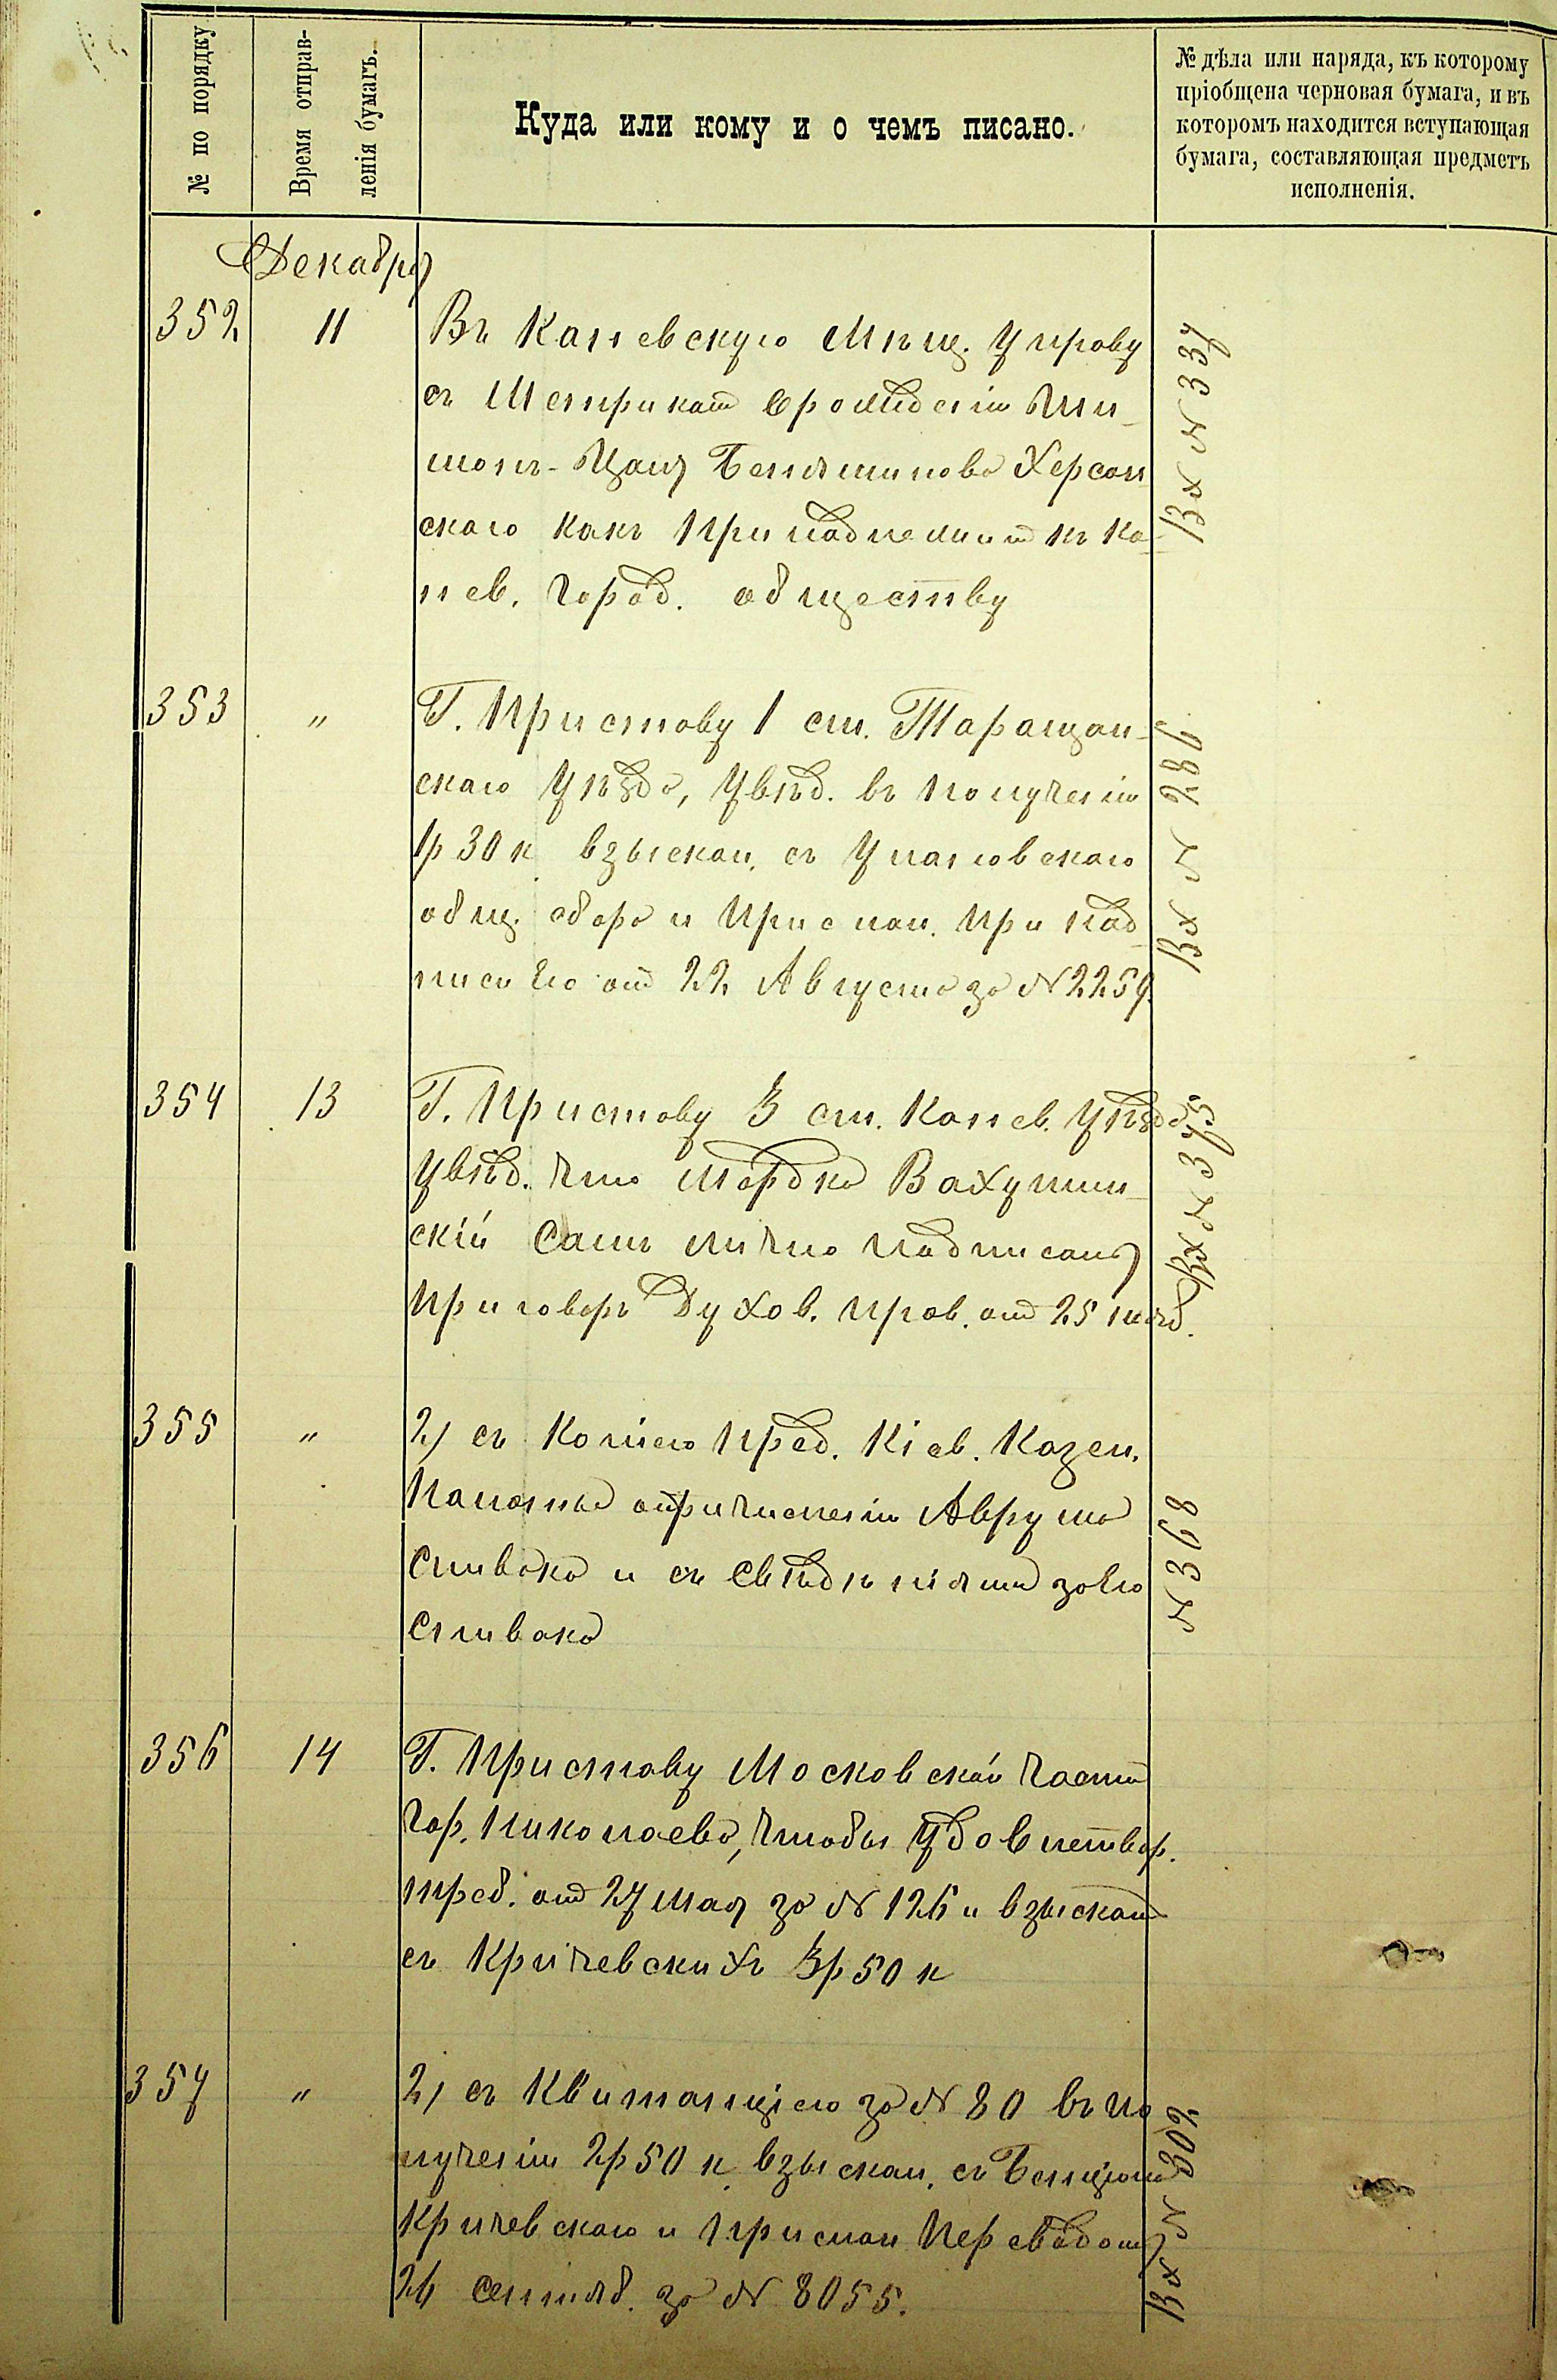 № по порядку
Время отправ-
ленія бумагъ.
Куда или кому и о чемъ писано.
№ дѣла или наряда, къ которому
пріобщена черновая бумага, и въ
которомъ находится вступающая
бумага, составляющая предметъ
исполненія.
Декабря
352 11 Въ Каневскую Мѣщ. Управу
съ Метрикой о рожденіи Ши-
монъ- Беньяминова Херсон
скаго какъ принадлежит къ Ка-
нев. город. обществу
Вх № 337
353 " Г. Приставу 1 ст. Таращан-
скаго уѣзда, увѣд. въ полученіи
1р 30 к взыскан. съ Улановскаго
общ. сбора и прислан. при над-
писи его от 22 Августа за № 2259.
Вх № 286
354 13 Г. Приставу 3 ст. Канев. уѣзда
увѣд. что Мордко Вахулин-
скій самъ лично подписалъ
приговоръ Духов. прав. от 25 нояб.
Вх № 375
355 " 2) съ копіею пред. Кіев. Казен.
Палаты о причисленіи Аврума
Спивака и съ свѣдѣніями за его
Спивака
№ 368
356 14 Г. Приставу Московской части
гор. Николаева, чтобы удовлетвор.
треб. от 27 мая за № 126 и взыскат
съ Кричевскихъ 3р 50 к
357 " 2) съ Квитанціею за № 80 въ по
лученіи 2р 50 к взыскан. съ Бенціона
Кричевскаго и прислан
26 Сентяб. за № 8055.
Вх № 302